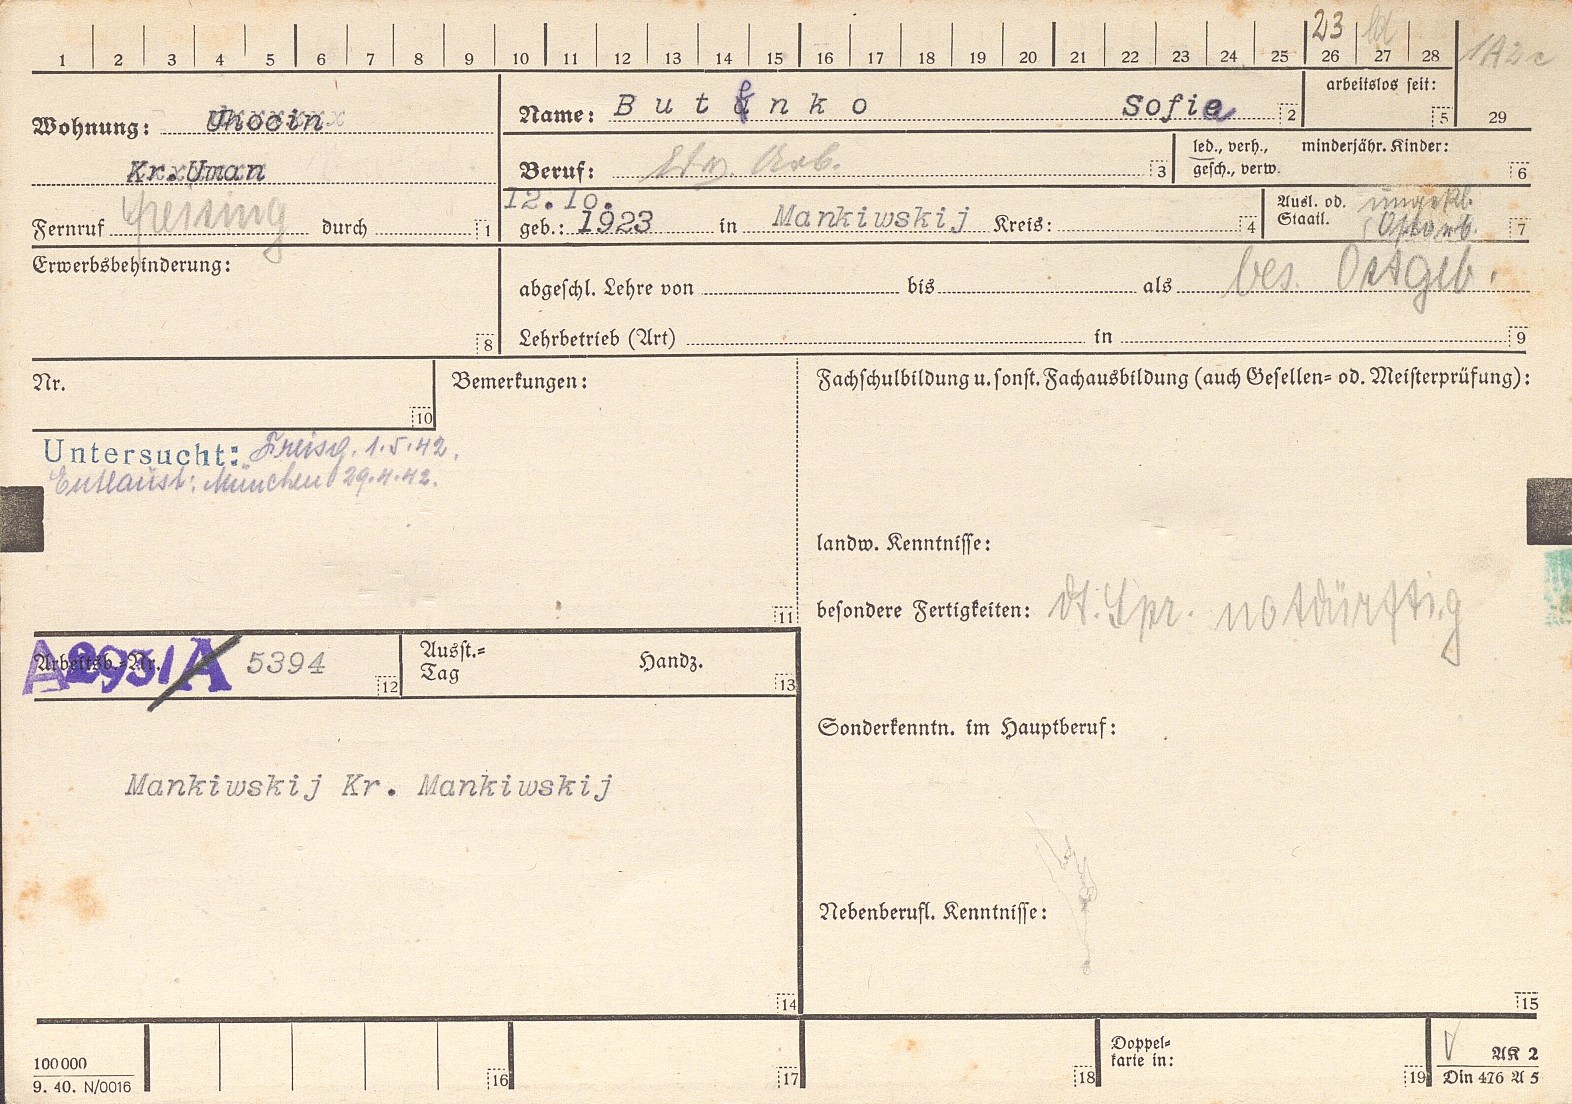 1 2 3 4 5 6 7 8 9 10 11 12 13 14 15 16 17 18 19 20 21 22 23 24 25 26 27 28
23
1A2c
Wohnung:
Kr. Uman
Name: Butenko Sofie 2
arbeitslos seit: 5
29
Beruf: Ldw. Arb. 3
led., verh., gesch., verw.
minderjähr. Kinder: 6
Fernruf durch 1
12.10.
geb.: 1923 in Mankiwskij Kreis: 4
Ausl. od. Staatl. ungekl. Ostarb. 7
Erwerbsbehinderung: 8
bes. Ostgeb.
abgeschl. Lehre von bis als
Lehrbetrieb (Art) in 9
Nr. 10
Bemerkungen:
Fachschulbildung u. sonst. Fachausbildung (auch Gesellen- od. Meisterprüfung):
Untersucht: Freisg. 1.5.42.
Entlaust: München 29.4.42.
landw. Kenntnisse:
besondere Fertigkeiten: dt. Spr. notdürftig
11
Arbeitsb.-Nr. A 5394 12
Ausst.-Tag Handz. 13
Sonderkenntn. im Hauptberuf:
Mankiwskij Kr. Mankiwskij
Nebenberufl. Kenntnisse:
14
15
100000
9. 40. N/0016
16
17
18
Doppel-
karte in:
19
AK 2
Din 476 A 5